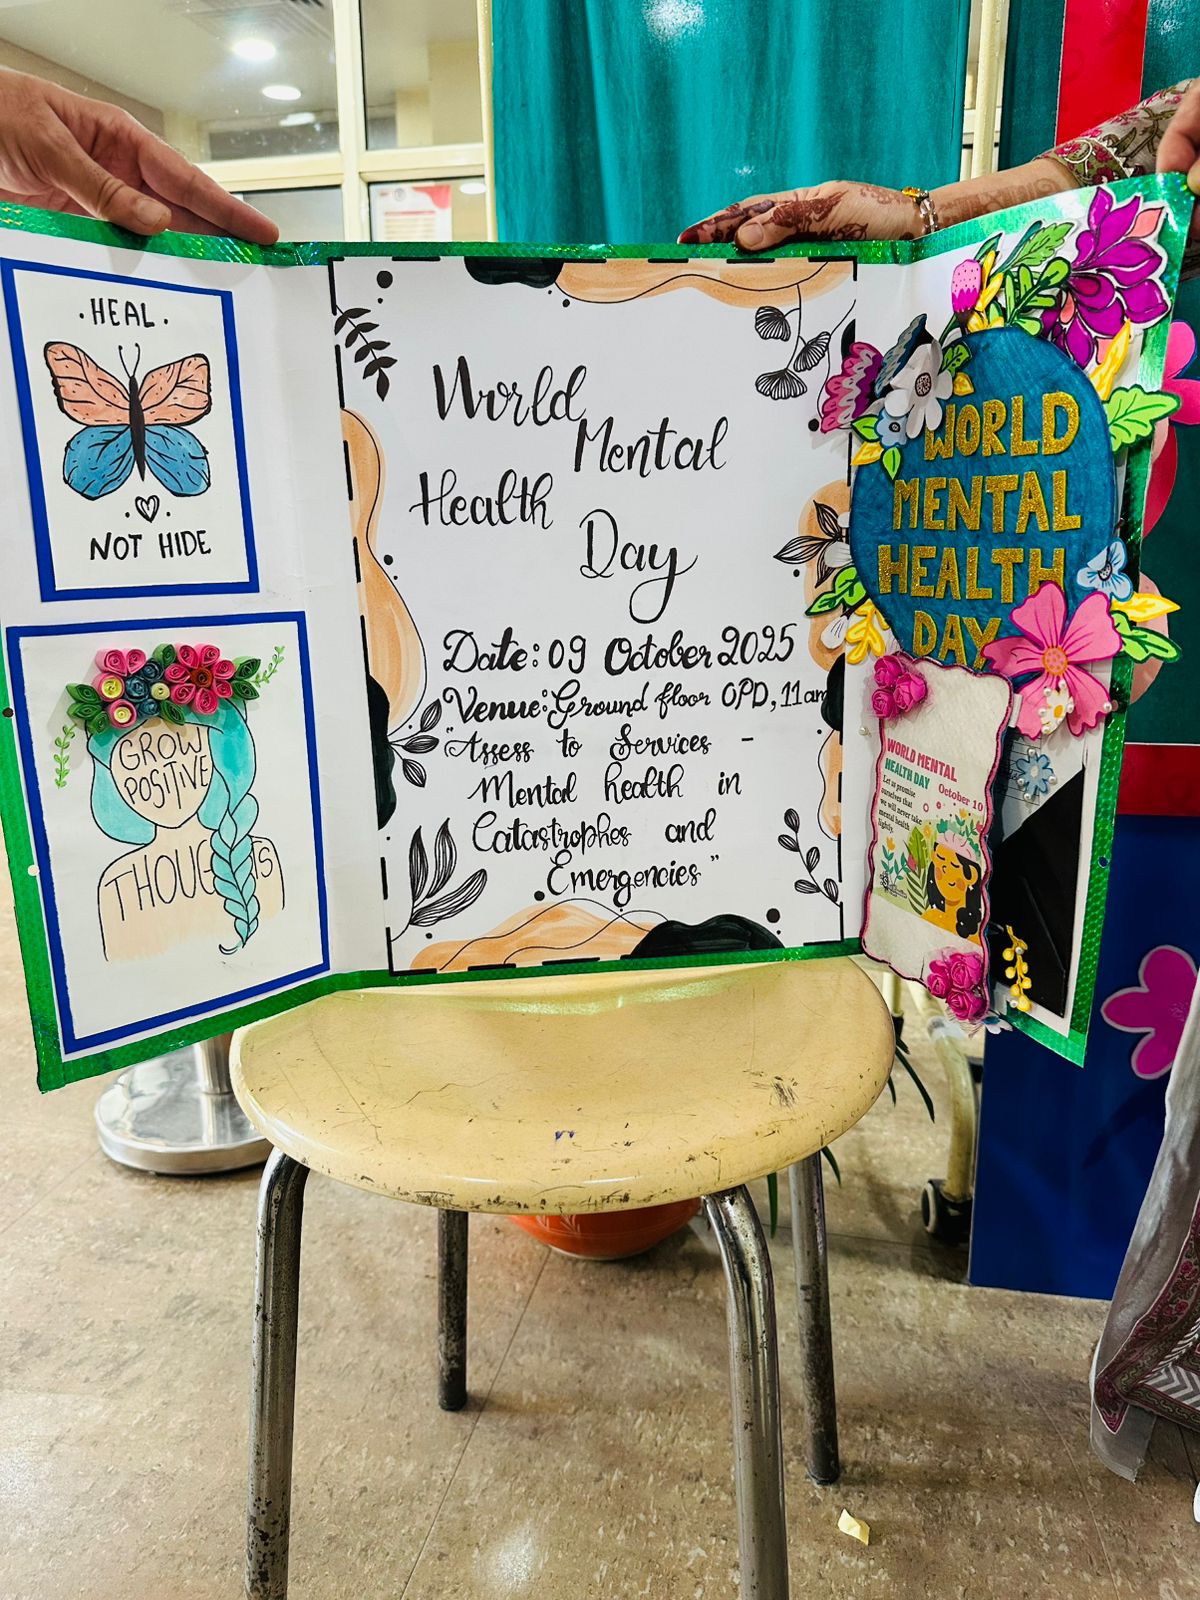 · HEAL ·
NOT HIDE
GROW
POSITIVE
THOUGHTS
World
Mental
Health
Day
Date: 09 October 2025
Venue: Ground floor OPD, 11 am
"Assess to Services -
Mental health in
Catastrophes and
Emergencies"
WORLD
MENTAL
HEALTH
DAY
WORLD MENTAL
HEALTH DAY
October 10
Let us promise
ourselves that
we will never take
mental health
lightly.